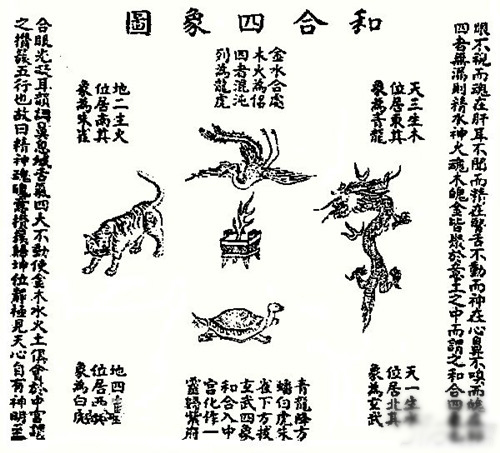 和合四象圖
眼不視而魂在肝耳不聞而精在腎舌不動而神在心鼻不嗅而魄在
四者無漏則精水神火魂木魄金皆聚於意土之中而謂之和合四
天三生木
位居東其
象為青龍
金水合處
木火為侶
四者混沌
列為龍虎
地二生火
位居南其
象為朱雀
天一生水
位居北其
象為玄武
青龍降方
蟠白虎朱
雀下方拔
玄武四象
和合入中
宮化作一
靈歸紫府
地四生金
位居西其
象為白虎
合眼光凝耳韻調鼻息緘舌氣四大不動使金木水火土俱會於中宮謂
之攢簇五行也故曰精神魂魄意攢簇歸坤位靜極見天心自有神明至